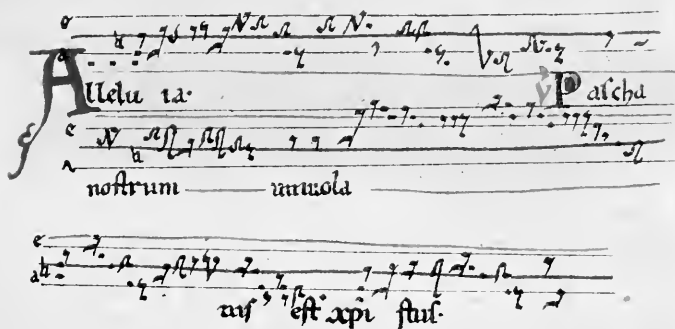 Allelu ia· ℣ Pascha
nostrum immola
tus est· xp̄i stus·